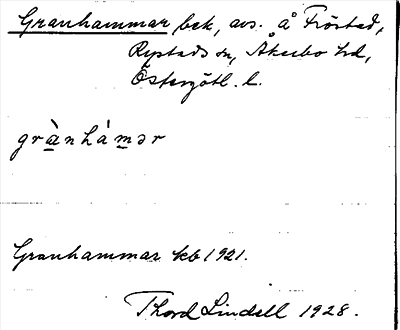 Granhammar bek, avs. å Fröstad,
Rystads sn, Åkerbo hd,
Östergötl. l.
grànhám̲ər
Granhammar kb 1921.
Thord Lindell 1928.